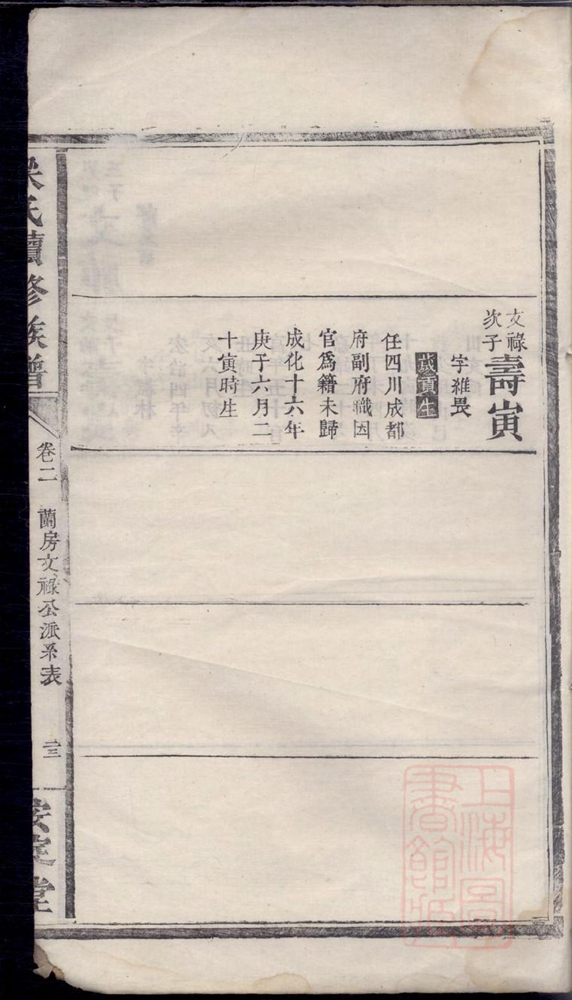 文祿
次子
壽寅
字雖畏
歲貢生
任四川成都
府副府職因
官爲籍未歸
成化十六年
庚子六月二
十寅時生
氏續修族譜
卷二
蘭房文祿公派系表
三
安定堂
上海圖
書館藏